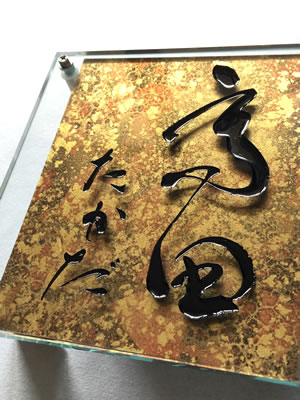 高田
たかだ